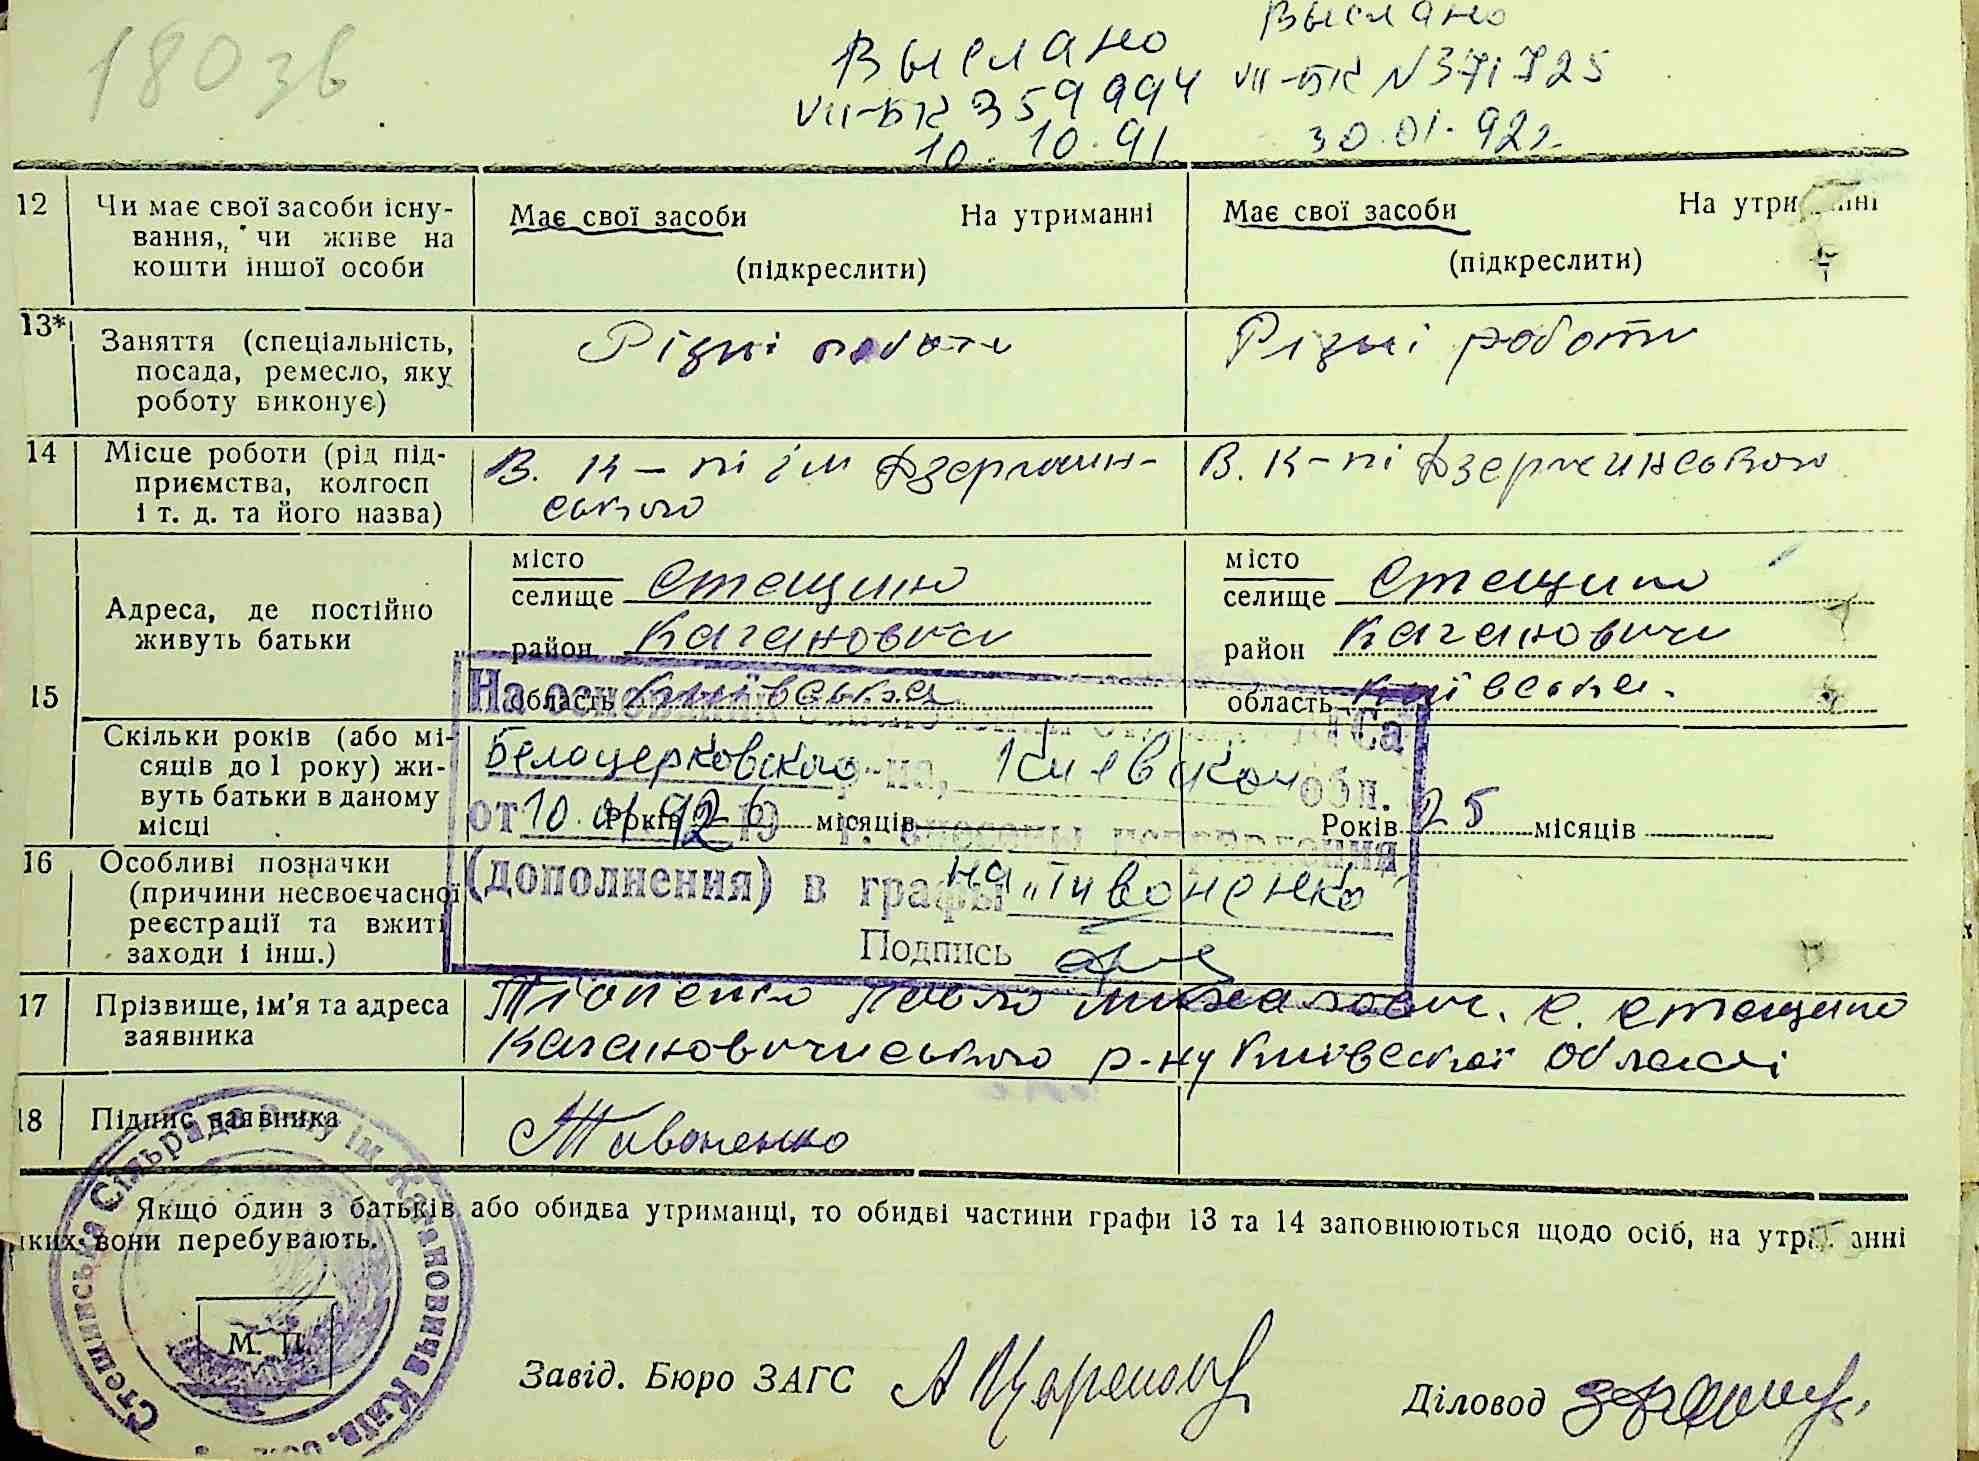 180 зв
Выслано
VII-БК 359994
10.10.91
Выслано
VII-БК N371725
30.01.92г.
12 Чи має свої засоби існу-
вання, чи живе на
кошти іншої особи
Має свої засоби На утриманні
(підкреслити)
Має свої засоби
(підкреслити)
13* Заняття (спеціальність,
посада, ремесло, яку
роботу виконує)
Різні роботи
Різні роботи
14 Місце роботи (рід під-
приємства, колгосп
і т. д. та його назва)
В. К-пі ім Дзержин-
ського
В. К-пі Дзержинського
15 Адреса, де постійно
живуть батьки
місто
селище Стещино
район Кагановичи
область Київська
місто
селище Стещино
район Кагановичи
область Київська.
Скільки років (або мі-
сяців до 1 року) жи-
вуть батьки в даному
місці
Років 26 місяців
Років 25 місяців
На основании ЗАГСа
Белоцерковского р-на, Киевской обл.
от 10.01.92 г. внесены исправления
(дополнения) в графы на "Тивоненко"
Подпись
16 Особливі позначки
(причини несвоєчасної
реєстрації та вжиті
заходи і інш.)
17 Прізвище, ім'я та адреса
заявника
Тівоненко Павло Михалович. с. Стещино
Кагановичиського р-ну Київської області
18 Підпис заявника
Тивоненко
Якщо один з батьків або обидва утриманці, то обидві частини графи 13 та 14 заповнюються щодо осіб, на
яких вони перебувають.
Стещинська Сільрада р-ну ім Кагановича Київ.
М. П.
Завід. Бюро ЗАГС
Діловод